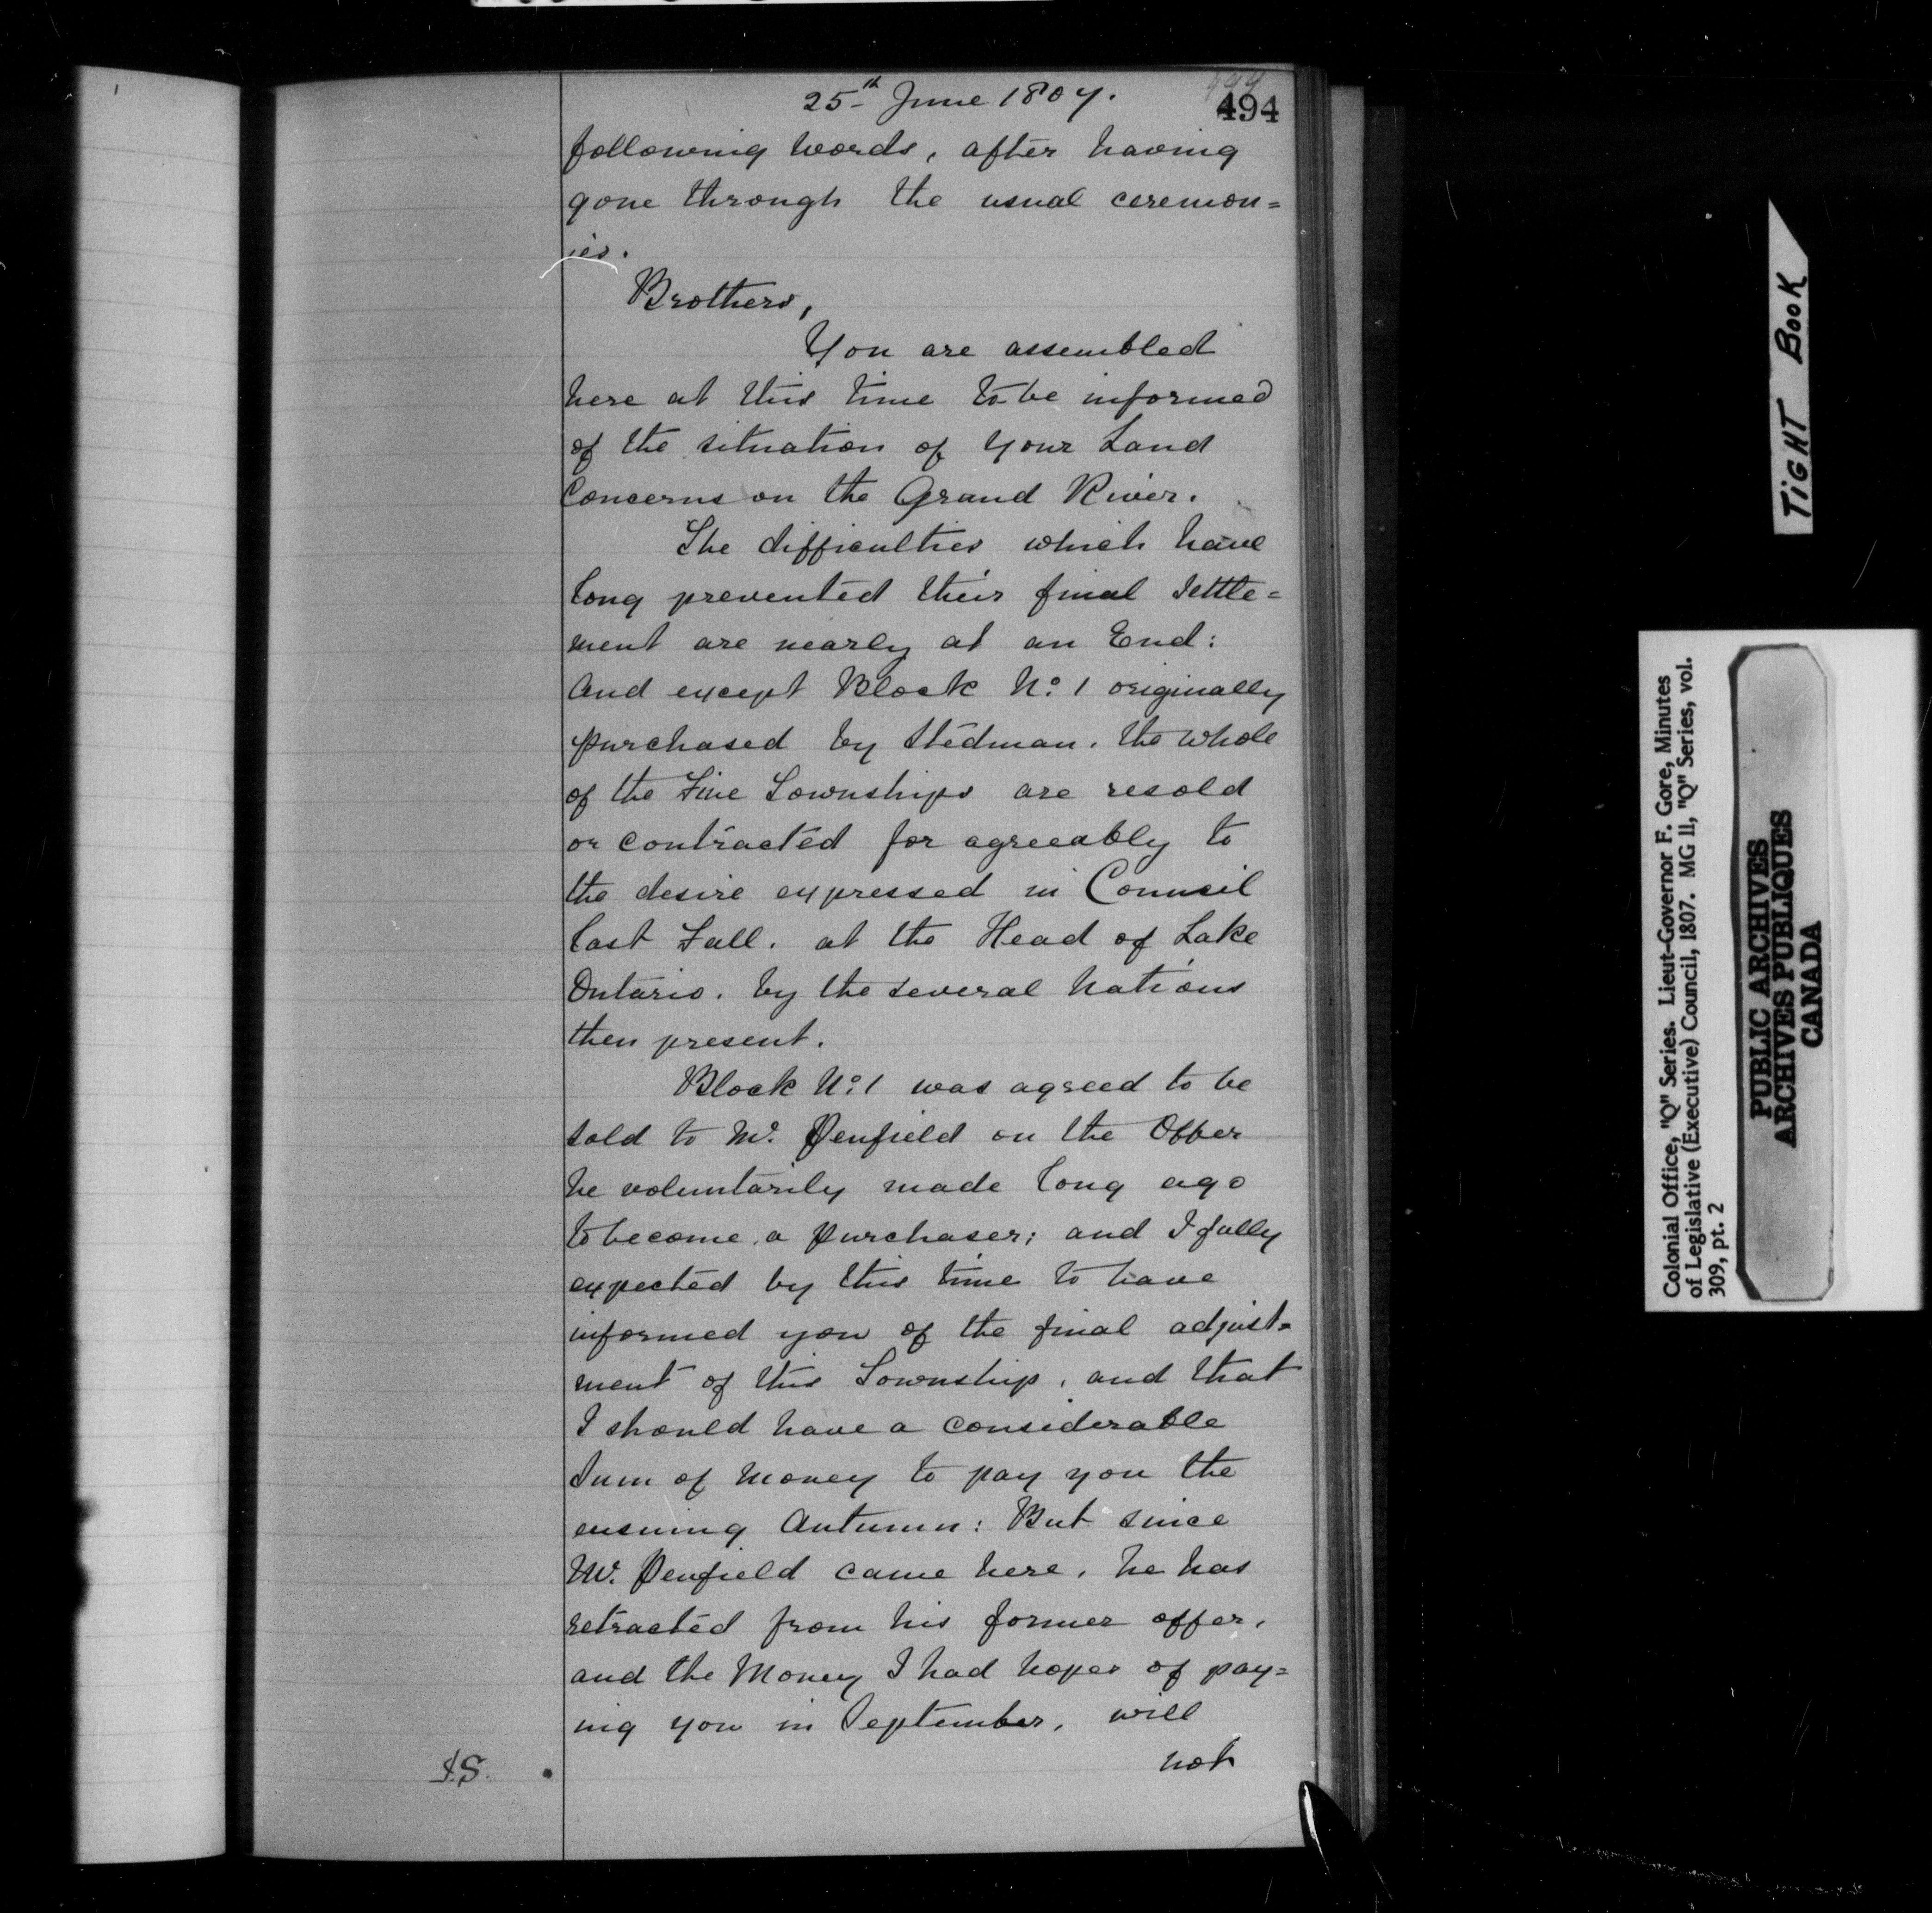 25th June 1807.
494
following words, after having
gone through the usual ceremon=
ies.
Brothers,
You are assembled
here at this time to be informed
of the situation of your Land
Concerns on the Grand River.
The difficulties which have
long prevented their final settle=
ment are nearly at an End:
And except Block No. 1 originally
purchased by Stedman, the whole
of the Five Townships are resold
or contracted for agreeably to
the desire expressed in Council
last Fall, at the Head of Lake
Ontario, by the several Nations
then present.
Block No. 1 was agreed to be
sold to Mr. Penfield on the Offer
he voluntarily made long ago
to become a purchaser; and I fully
expected by this time to have
informed you of the final adjust=
ment of this Township, and that
I should have a considerable
Sum of Money to pay you the
ensuing Autumn: But since
Mr. Penfield came here, he has
retracted from his former offer,
and the Money I had hopes of pay=
ing you in September, will
not
I.S.
TIGHT BOOK
Colonial Office, "Q" Series. Lieut-Governor F. Gore, Minutes
of Legislative (Executive) Council, 1807. MG 11, "Q" Series, vol.
309, pt. 2
PUBLIC ARCHIVES
ARCHIVES PUBLIQUES
CANADA